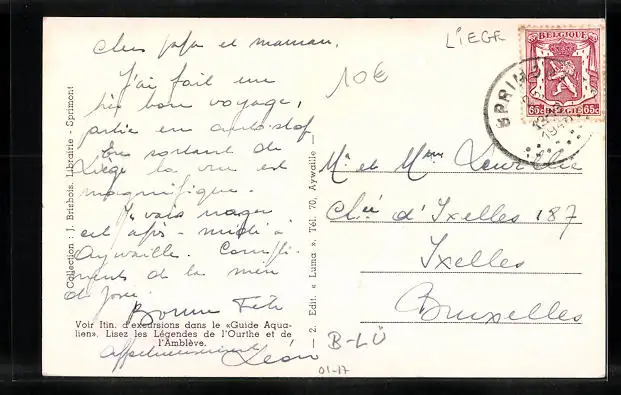 LIEGE
10€
BELGIQUE
65c 65c
SPRIMO
Chers papa et maman,
J'ai fait un
très bon voyage,
partie en auto-stop
En sortant de
Liège la vue est
magnifique.
Je vais nager
cet après-midi à
Aywaille. Compli-
ments de la mien
de José.
Bonne Fête
Affectueusement
Léon
Voir Itin. d'excursions dans le «Guide Aqua-
lien». Lisez les Légendes de l'Ourthe et de
l'Amblève.
Collection : J. Brichois. Librairie - Sprimont
— 2. Edit. « Luma ». Tél. 70, Aywaille —
Mr et Mme
Chée d'Ixelles 187
Ixelles
Bruxelles
B-LÜ
01-17